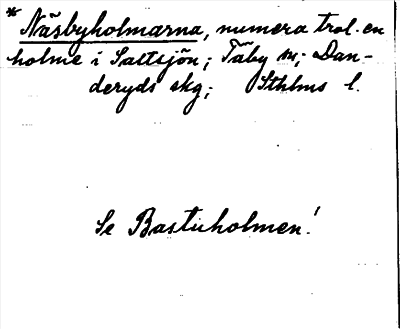 * Näsbyholmarna, numera trol. en
holme i Saltsjön; Täby sn; Dan-
deryds skg; Sthlms l.
Se Bastuholmen!